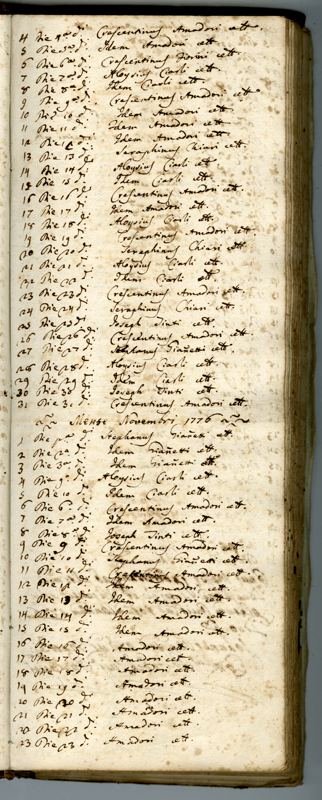 4 Die 4ª dº Crescentinus Amadori cett.
5 Die 5ª dº Idem Amadori cett.
6 Die 6ª dº Crescentinus Fiorini cett.
7 Die 7ª dº Aloysius Ciarli cett.
8 Die 8ª dº Idem Ciarli cett.
9 Die 9ª dº Crescentinus Amadori cett.
10 Die 10 dº Idem Amadori cett.
11 Die 11 dº Idem Amadori cett.
12 Die 12 dº Idem Amadori cett.
13 Die 13 dº Seraphinus Chiari cett.
14 Die 14 dº Aloysius Ciarli cett.
15 Die 15 dº Idem Ciarli cett.
16 Die 16 dº Crescentinus Amadori cett.
17 Die 17 dº Idem Amadori cett.
18 Die 18 dº Aloysius Ciarli cett.
19 Die 19 dº Crescentinus Amadori cett.
20 Die 20 dº Seraphinus Chiari cett.
21 Die 21 dº Aloysius Ciarli cett.
22 Die 22 dº Idem Ciarli cett.
23 Die 23 dº Crescentinus Amadori cett.
24 Die 24 dº Seraphinus Chiari cett.
25 Die 25 dº Joseph Tinti cett.
26 Die 26 dº Crescentinus Amadori cett.
27 Die 27 dº Stephanus Giañetti cett.
28 Die 28 dº Aloysius Ciarli cett.
29 Die 29 dº Idem Ciarli cett.
30 Die 30 dº Joseph Tinti cett.
31 Die 31 dº Crescentinus Amadori cett.
Mense Novembri 1776
1 Die pª dº Stephanus Giañetti cett.
2 Die 2ª dº Idem Giañetti cett.
3 Die 3ª dº Idem Giañetti cett.
4 Die dº Aloysius Ciarli cett.
5 Die dº Idem Ciarli cett.
6 Die 6ª dº Crescentinus Amadori cett.
7 Die 7ª dº Idem Amadori cett.
8 Die 8ª dº Joseph Tinti cett.
9 Die 9 dº Crescentinus Amadori cett.
10 Die 10 dº Stephanus Giañetti cett.
11 Die 11 dº Crescentinus Amadori cett.
12 Die 12 dº Idem Amadori cett.
13 Die 13 dº Idem Amadori cett.
14 Die 14 dº Idem Amadori cett.
15 Die 15 dº Idem Amadori cett.
16 Die 16 dº Amadori cett.
17 Die 17 dº Amadori cett.
18 Die 18 dº Amadori cett.
19 Die 19 dº Amadori cett.
20 Die 20 dº Amadori cett.
21 Die 21 dº Amadori cett.
22 Die 22 dº Amadori cett.
23 Die 23 dº Amadori cett.